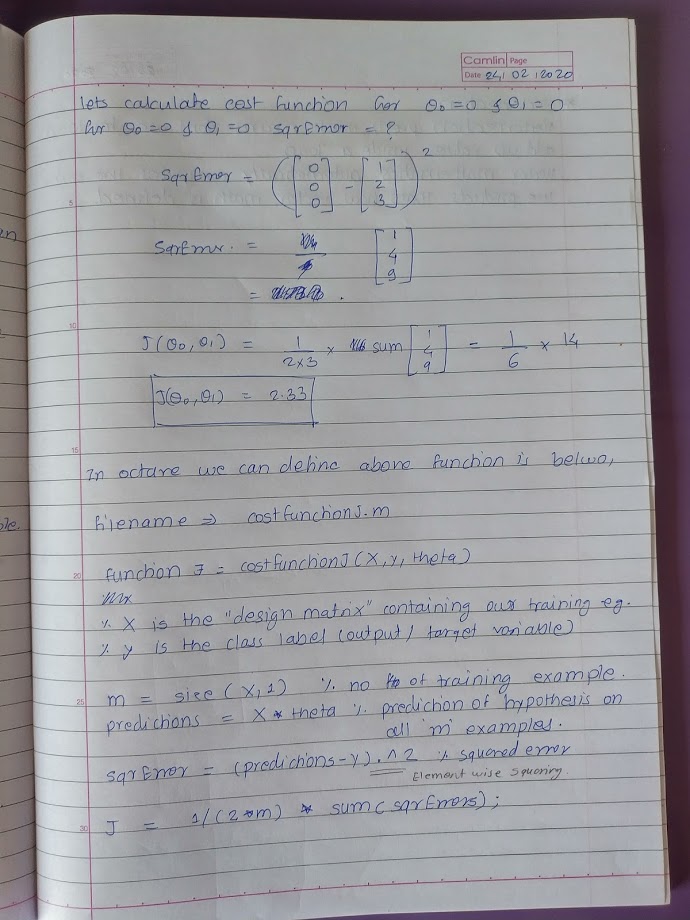 Camlin Page
Date 24 / 02 / 2020
lets calculate cost function for θ₀ = 0 & θ₁ = 0
for θ₀ = 0 & θ₁ = 0 sqrError = ?
SqrError = ([0 0 0] - [1 2 3])²
5
SqrError. = [1 4 9]
= .
10
J(θ₀, θ₁) = 1/2×3 × sum [1 4 9] = 1/6 × 14
J(θ₀, θ₁) = 2.33
15
In octave we can define above function is belwo,
filename ⇒ costfunctionJ.m
20
function J = costfunctionJ(X, y, theta)
% X is the "design matrix" containing our training eg.
% y is the class label (output / target variable)
25
m = size(X,1) % no of training example.
predictions = X * theta % prediction of hypothesis on
all 'm' examples.
sqrError = (predictions-y).^2 % squared error
Element wise squaring.
30
J = 1/(2*m) * sum(sqrErrors);